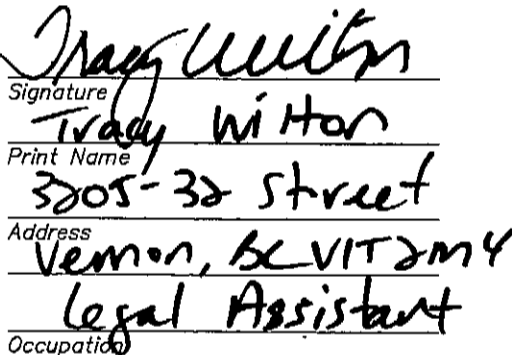 Tracy Wilton
Signature
Tracy Wilton
Print Name
3205-32 Street
Address
Vernon, BC V1T2M4
Legal Assistant
Occupation